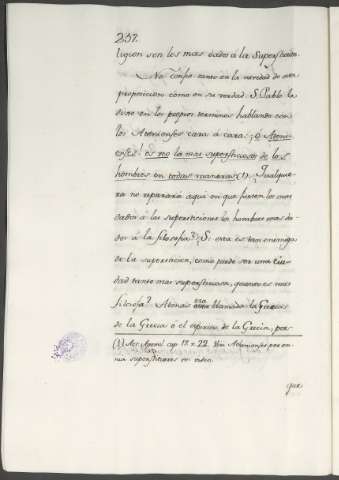 237.
ligion son los mas dados á la Supersticion.
No consiste tanto en la novedad de esta
proposicion como en su verdad. S. Pablo la
dixo en los propios terminos hablando con
los Atenienses cara á cara: ó Ateni-
enses! os veo los mas supersticiosos de los
hombres en todas maneras (1). Qualquie-
ra no repararía aqui en que fuesen los mas
dados á las supersticiones los hombres mas da-
dos á la filosofía? Si esta es tan enemiga
de la supersticion, como puede ser una Ciu-
dad tanto mas supersticiosa, quanto es mas
filosofa? Atenas era llamada la Grecia
de la Grecia ó el espiritu de la Grecia, por
(1) Act. Apostol. cap. 17. v. 22. Viri Athenienses per om-
nia superstitiosiores vos video.
que